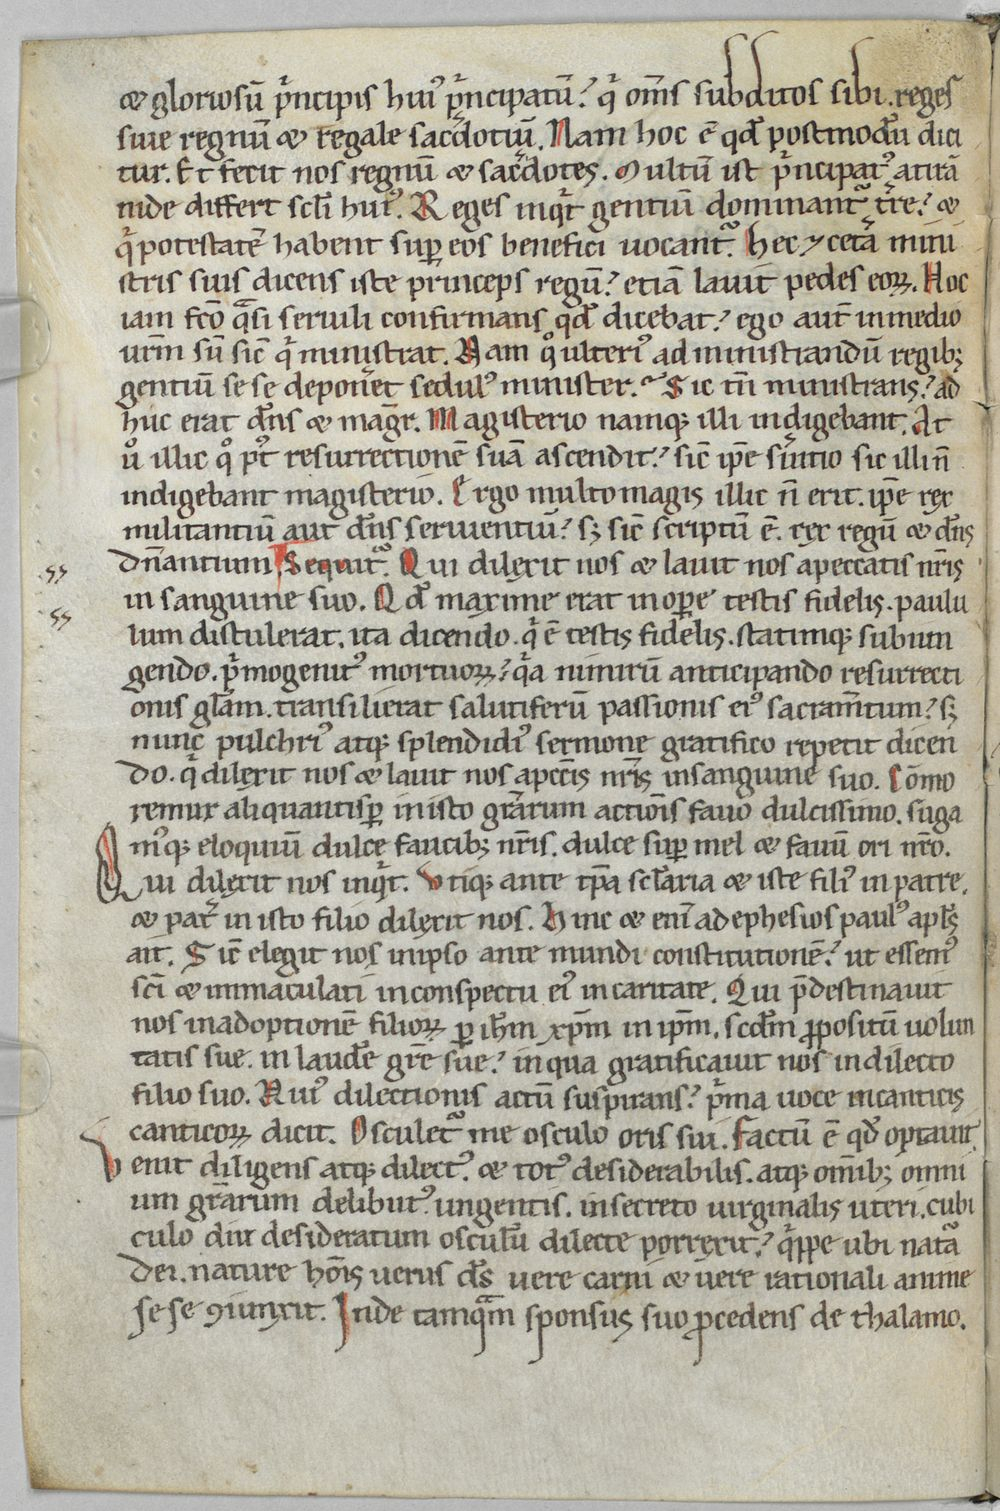 & gloriosū p̓ncipis hui᾽ p̓ncipatū? q̓ om̄s subditos sibi. reges
siue regnū & regale sacdotiū. Nam hoc ē qd̄ postmodū dici
tur. Et fecit nos regnū & sacdotes. Multū ist p̓ncipat᾽ a tirā
nide differt scl̄i hui᾽. Reges inq̓t gentiū dominant᷑ tr̄e? &
q̓ potestatē habent sup̱ eos benefici uocant᷑. Hec ⁊ cetā mini
stris suis dicens iste princeps regū? etiā lauit pedes eoꝝ. Hoc
iam fc̄o q̄si seruili confirmans qd̄ dicebat? ego aut̄ in medio
ur̄m sū sic̄ q̓ ministrat. Nam qͦ ulteri᾽ ad ministrandū regibꝫ
gentiū se se deponeret sedul᾽ minister? Sic tn̄ ministrans? ad
huc erat dn̄s & magr̄. Magisterio namqꝫ illi indigebant. At
uͦ illic qͦ p᾽t resurrectionē suā ascendit? sic̄ ip̄e seruitio sic illi n̄
indigebant magisterio. Ergo multo magis illic n̄ erit. ip̄e rex
militantiū aut dn̄s seruientiū? sꝫ sic̄ scriptū ē. rex regū & dn̄s
dn̄antium Sequit᷑. Qui dilexit nos & lauit nos a peccatis nr̄is
in sanguine suo. Qd̄ maxime erat in oꝑe testis fidelis. paulu
lum distulerat. ita dicendo. q̓ ē testis fidelis. statimqꝫ subiun
gendo. p̓mogenit᾽ mortuoꝝ? q̓a nimirū anticipando resurrecti
onis gl̄am. transilierat salutiferū passionis ei᾽ sacram̄tum? sꝫ
nunc pulchri᾽ atqꝫ splendidi᾽ sermone gratifico repetit dicen
do. q̓ dilexit nos & lauit nos a pccīs nr̄is in sanguine suo. Cōmo
remur aliquantisꝑ in isto gr̄arum actiōis fauo dulcissimo. suga
m᾽qꝫ eloquiū dulce faucibꝫ nr̄is. dulce suꝑ mel & fauū ori nr̄o.
Qui dilexit nos inq̓t. Vtiqꝫ ante tp̄a scl̄aria & iste fili᾽ in patre.
& pat̓ in isto filio dilexit nos. Hinc & eni᾽ ad ephesios paul᾽ apl̄s
ait. Sic̄ elegit nos in ipso ante mundi constitutionē? ut essem᾽
sc̄i & immaculati in conspectu ei᾽ in caritate. Qui p̄destinauit
nos in adoptionē filioꝝ ꝑ ih̄m xp̄m in ip̄m. scdm̄ ꝓpositū uolun
tatis sue. in laude gr̄e sue? in qua gratificauit nos in dilecto
filio suo. Hui᾽ dilectionis actū suspirans? p̓ma uoce in canticis
canticoꝝ dicit. Osculet᷑ me osculo oris sui. Factū ē qd̄ optauit.
Venit diligens atqꝫ dilect᾽. & tot᾽ desiderabilis. atqꝫ om̄ibꝫ omni
um gr̄arum delibut᾽ ungentis. in secreto uirginalis uteri. cubi
culo diu desideratum osculū dilecte porrexit? q̓ppe ubi natā
dei. nature hōis uerus ds̄ uere carni & uere rationali anime
se se ꝯiunxit. Inde tamq̄m sponsus suo ꝓcedens de thalamo.
ss
ss